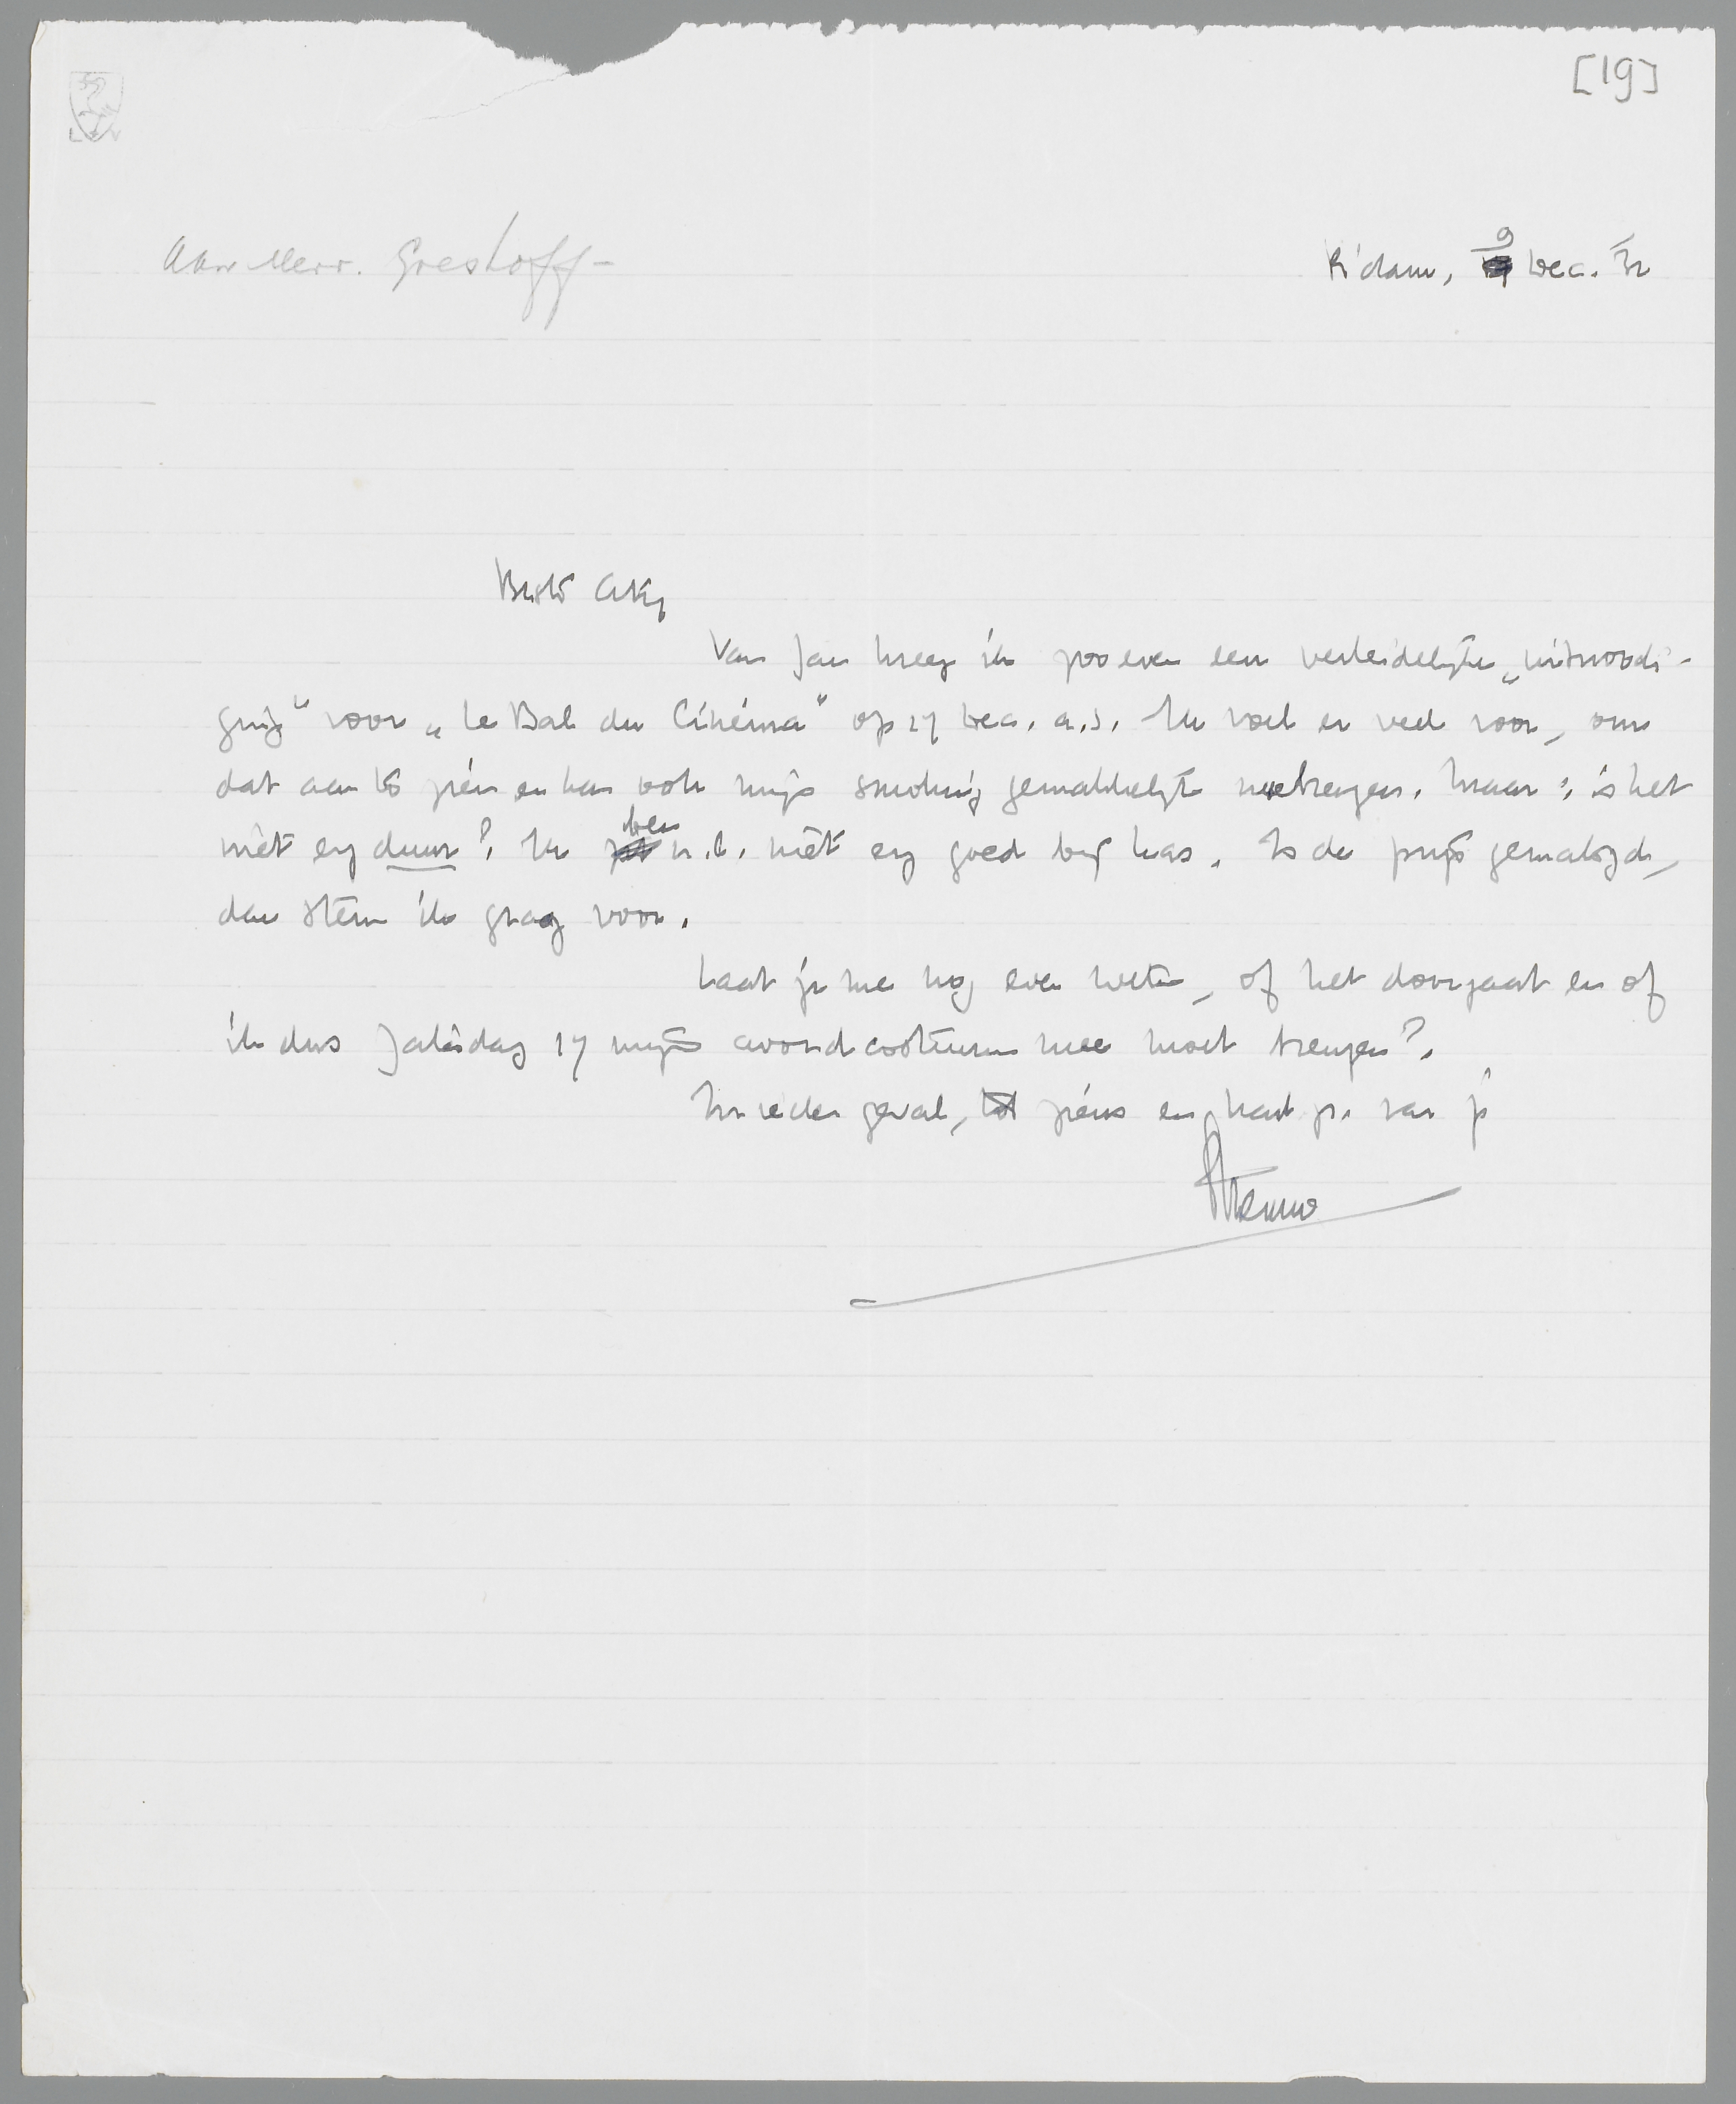 [19]
Aan Mevr. Greshoff –
R'dam, 9 Dec. '32
Beste Aty
Van Jan kreeg ik zooeven een verleidelijke „uitnoodi-
ging” voor „Le Bal du Cinéma” op 17 Dec. a.s. Ik voel er veel voor, om
dat aan te zien en kan ook mijn smoking gemakkelijk meebrengen. Maar: is het
niet erg duur? Ik ben n.l. niet erg goed bij kas. Is de prijs gematigd,
dan stem ik graag voor.
Laat je me nog even weten, of het doorgaat en of
ik dus Zaterdag 17 mijn avondcostuum mee moet brengen?
In ieder geval, tot ziens en hart. gr. van je
Menno